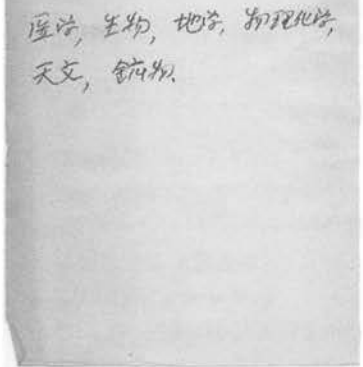 医学, 生物, 地学, 物理化学,
天文, 鉱物.